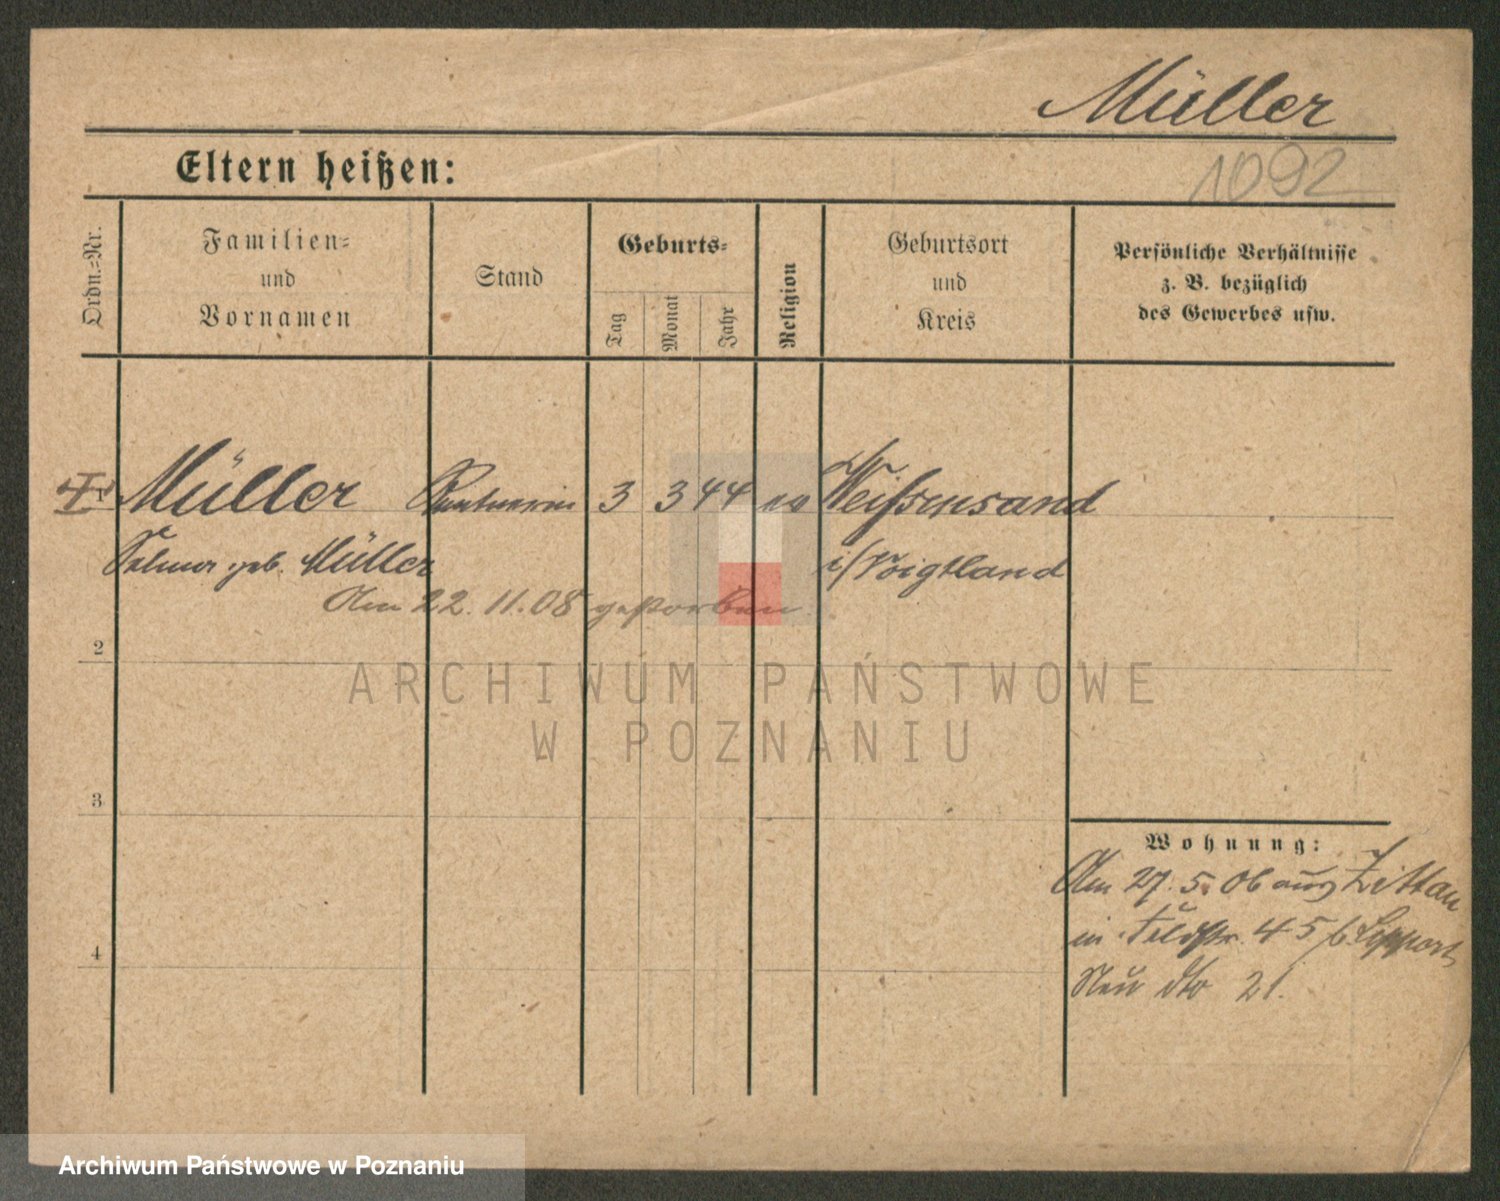 Müller
Eltern heißen:
1092
Ordn.-Nr.
Familien-
und
Vornamen
Stand
Geburts-
Tag
Monat
Jahr
Religion
Geburtsort
und
Kreis
Persönliche Verhältnisse
z. B. bezüglich
des Gewerbes usw.
1 Müller Rentnerin 3 3 44 ev Weißensand
Selma geb. Müller i/Voigtland
Am 22. 11. 08 gestorben
2
ARCHIWUM PAŃSTWOWE
W POZNANIU
3
Wohnung:
Am 27. 5. 06 aus Zittau
in Feldstr. 45 b.
4
Neu dto 21.
Archiwum Państwowe w Poznaniu